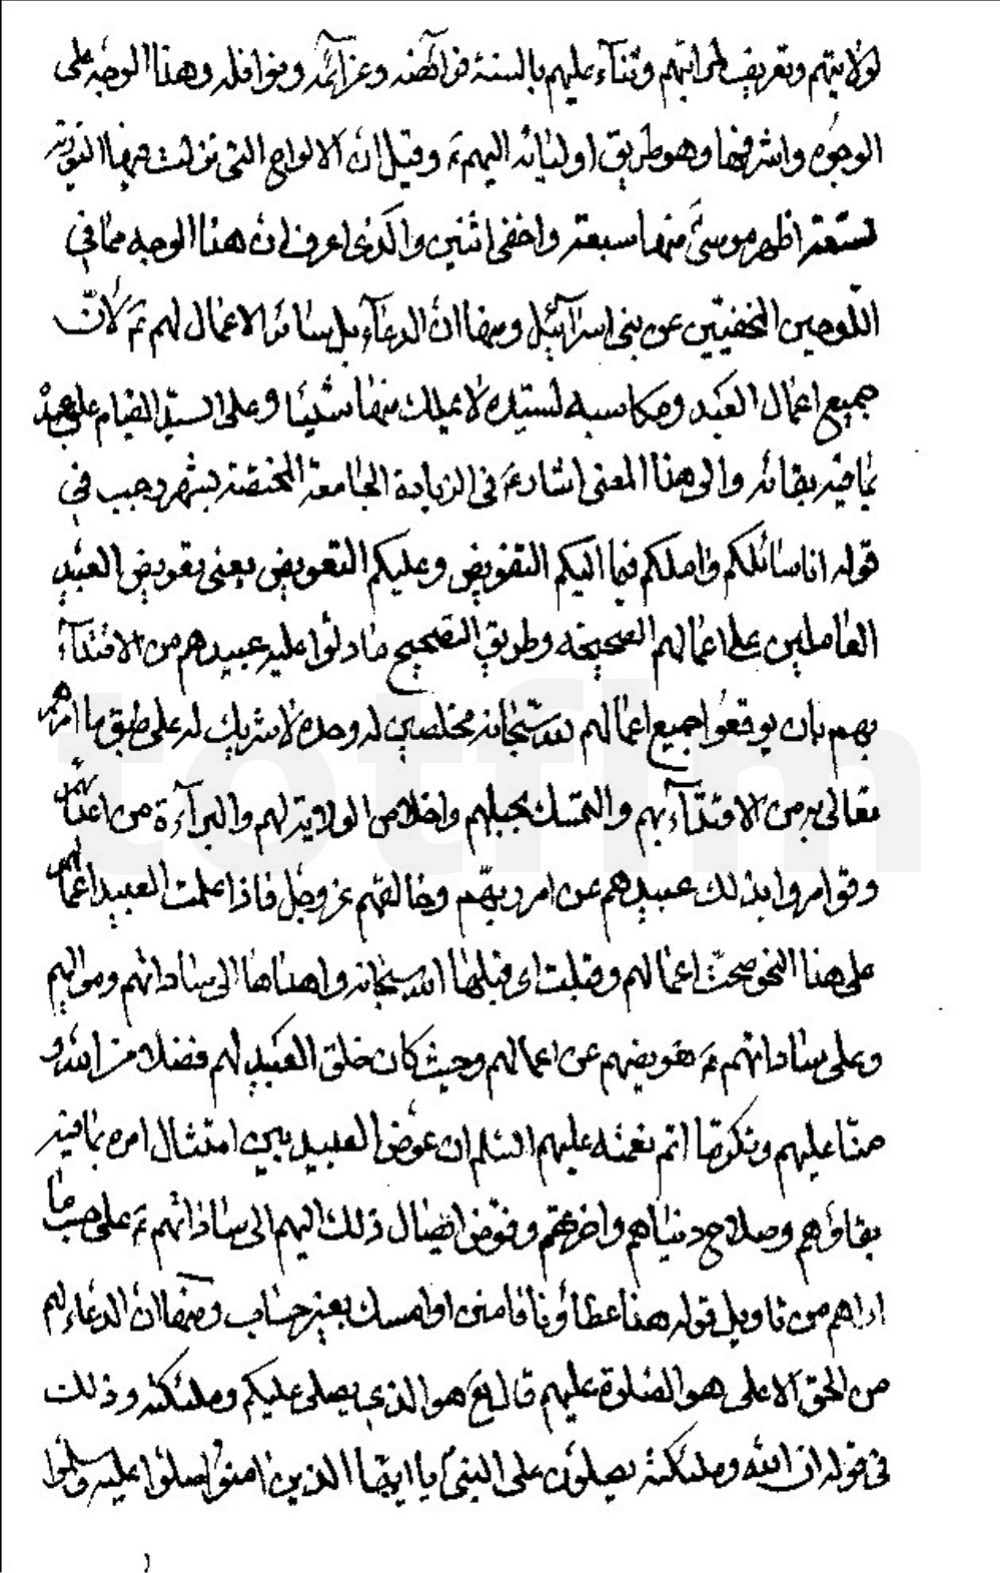 لولايتهم وتعريف لمراتبهم وثناء عليهم بالسنة فرائضه وعزائمه ونوافله وهذا الوجه على
الوجوه واشرفها وهو طريق اوليائه اليهم ع وقيل ان الالواح التى نزلت فيها التورية
تسعة اظهر موسى منها سبعة واخفى اثنين والذى اعرف ان هذا الوجه مما في
اللوحين المخفيين عن بنى اسرآئيل ومنها ان الدعآء بل سائر الاعمال لهم ع لانّ
جميع اعمال العبد ومكاسبه لسيّده لا يملك منها شيئا وعلى السيّد القيام على عبده
بما فيه بقائه والى هذا المعنى اشار ع فى الزيارة الجامعة المختصة بشهر رجب في
قوله انا سائلكم واملكم فيما اليكم التفويض وعليكم التعويض يعنى تعويض العبيد
العاملين على اعمالهم الصحيحة وطريق التصحيح ما دلوا عليه عبيدهم من الاقتدآء
بهم بان يوقعوا جميع اعمالهم لله سبحانه مخلصين له وحده لا شريك له على طبق ما امرهم
تعالى به من الاقتدآء بهم والتمسك بحبلهم واخلاص الولاية لهم والبرآءة من اعدائهم
وقد امروا بذلك عبيدهم عن امر ربّهم وخالقهم عز وجل فاذا عملت العبيد اعمالهم
على هذا النحو صحت اعمالهم وقبلت اى قبلها الله سبحانه واهداها الى ساداتهم ومواليهم
وعلى ساداتهم ع تعويضهم عن اعمالهم وحيث كان خلق العبيد لهم فضلا من الله و
منّا عليهم وتكرّما اتم نعمته عليهم السلم ان عوّض العبيد بين امتثال امره بما فيه
بقاؤهم وصلاح دنياهم واخرتهم وفوّض ايصال ذلك اليهم الى ساداتهم ع على حسب ما
اراهم من تاويل قوله هذا عطاؤنا فامنن او امسك بغير حساب ومنها ان الدعاء لهم
من الحق الاعلى هو الصلوة عليهم قال تع هو الذي يصلى عليكم وملئكته وذلك
فى قوله ان الله وملئكته يصلون على النبىّ يا ايها الذين امنوا صلوا عليه وسلموا